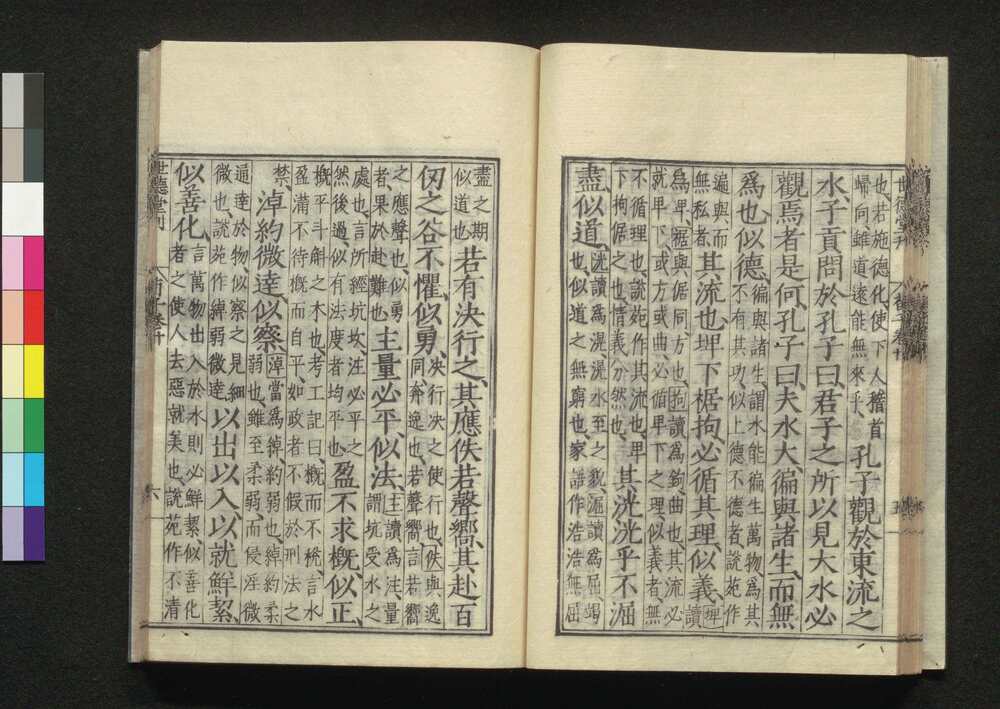 也若施德化使下人稽首
歸向雖道遠能無來乎
孔子觀於東流之
水子貢問於孔子曰君子之所以見大水必
觀焉者是何孔子曰夫水大徧與諸生而無
爲也似德
徧與諸生謂水能徧生萬物爲其
不有其功似上德不德者說苑作
遍與而
無私者
其流也埤下裾拘必循其理似義
埤
讀
爲卑裾與倨同方也拘讀爲鉤曲也其流必
就卑下或方或曲必循卑下之理似義者無
不循理也說苑作其流也卑
下拘倨之也情義分然也
其洸洸乎不淈
盡似道
洸讀爲滉滉水至之貌淈讀爲屈竭
也似道之無窮也家語作浩浩無屈
盡之期
似道也
若有決行之其應佚若聲嚮其赴百
仞之谷不懼似勇
決行決之使行也佚與逸
同奔逸也若聲嚮言若嚮
之應聲也似勇
者果於赴難也
主量必平似法
主讀爲注量
謂坑受水之
處也言所經坑坎注必平之
然後過似有法度者均平也
盈不求槪似正
槪平斗斛之木也考工記曰槪而不稅言水
盈滿不待槪而自平如政者不假於刑法之
禁
淖約微達似察
淖當爲綽約弱也綽約柔
弱也雖至柔弱而侵淫微
逼達於物似察之見細
微也說苑作綽弱微達
以出以入以就鮮絜
似善化
言萬物出入於水則必鮮絜似善化
者之使人去惡就美也說苑作不清
世德堂刊
六